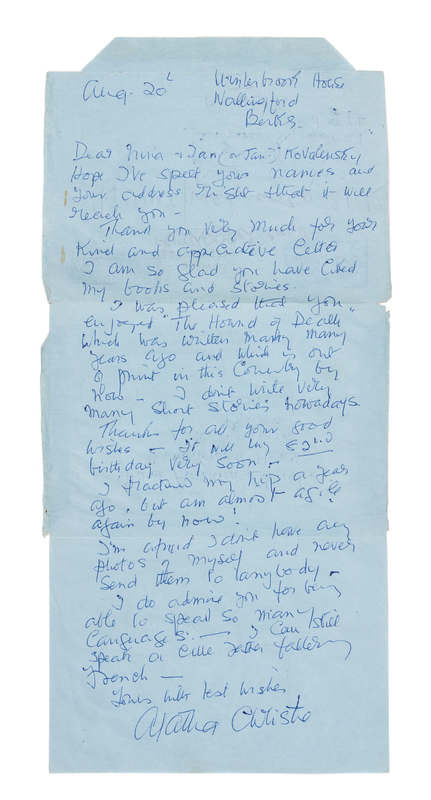 Aug. 20
Winterbrook House
Wallingford
Berks.
Dear Nina & Jan (or Jani) Kovalensky
Hope I've spelt your names and
your address right & that it will
reach you -
Thank you very much for your
kind and appreciative letter
I am so glad you have liked
my books and stories.
I was pleased that you
enjoyed "The Hound of Death"
which was written many many
years ago and which is out
of print in this Country by
now - I don't write very
many short stories nowadays
Thanks for all your good
wishes - It will be my 82nd
birthday very soon -
I fractured my hip a year
ago, but am almost agile
again by now!
I'm afraid I don't have any
photos of myself and never
send them to anybody -
I do admire you for being
able to speak so many
Languages. - I can still
speak a little rather faltering
French -
Yours with best wishes
Agatha Christie